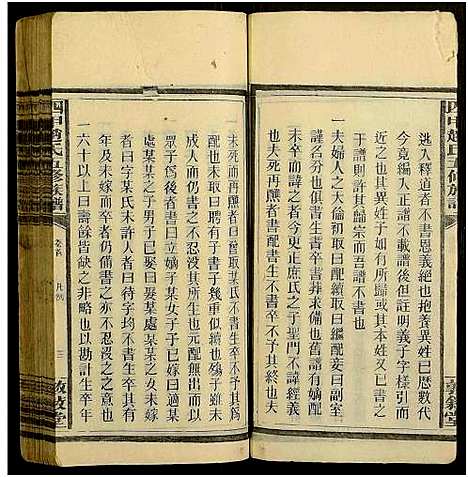 四甲趙氏五修族譜
逃入釋道者不書恩義絕也抱養異姓已歷數代
今竟編入正譜不載譜後但註明義子字樣引而
近之其異姓父子如有所歸或其本人不願入
于譜則許其歸宗而吾譜不書
一夫婦人之大倫初取曰配續取曰繼配妾曰副室
謹名分也俱書生書卒葬求備也舊譜有嫡配
未卒而諱之者今更正庶氏書生卒不諱經義
也夫死再醮者書生不書卒不予其終也夫
敦敘堂
未死而再醮者曰舊取某氏不書生卒不予以其氏
也未取曰聘有子書子重似續也殤子雖未
成人而仍書之不忍没其實也元配無出而以
衆子為後者書曰立嫡子某女子子已嫁曰適某
處某某之子男子已娶曰妻某處某某之女未嫁
者曰字某氏未許人者曰待字不忍没之之意也
六十以上書曰壽餘皆缺之非略也以勘計生卒年
四甲趙氏五修族譜
卷首
凡例
三
敦敘堂